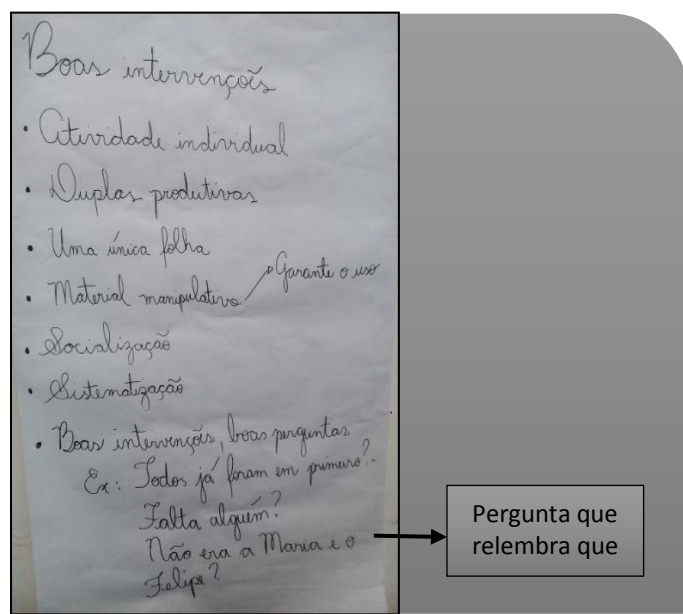 Boas intervenções
• Atividade individual
• Duplas produtivas
• Uma única folha
• Material manipulativo Garante o uso
• Socialização
• Sistematização
• Boas intervenções, boas perguntas
Ex: Todos já foram em primeiro?
Falta alguém?
Não era a Maria e o
Felipe?
Pergunta que
relembra que